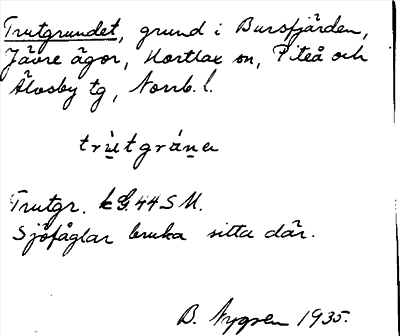 Trutgrundet, grund i Bursfjärden,
Jävre ägor, Hortlax sn, Piteå och
Älvsby tg, Norrb. l.
trùtgráṇa
Trutgr. k G. 44 S M.
Sjöfåglar bruka sitta där.
B. Nygren 1935.